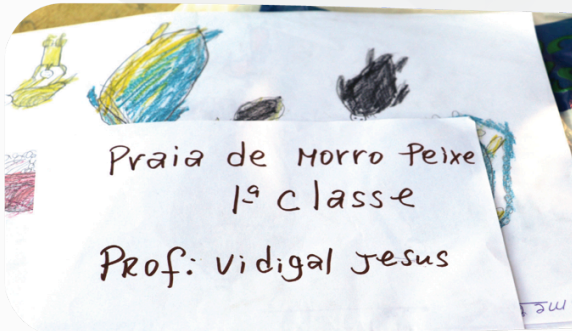 Praia de Morro Peixe
1ª classe
Prof: Vidigal Jesus